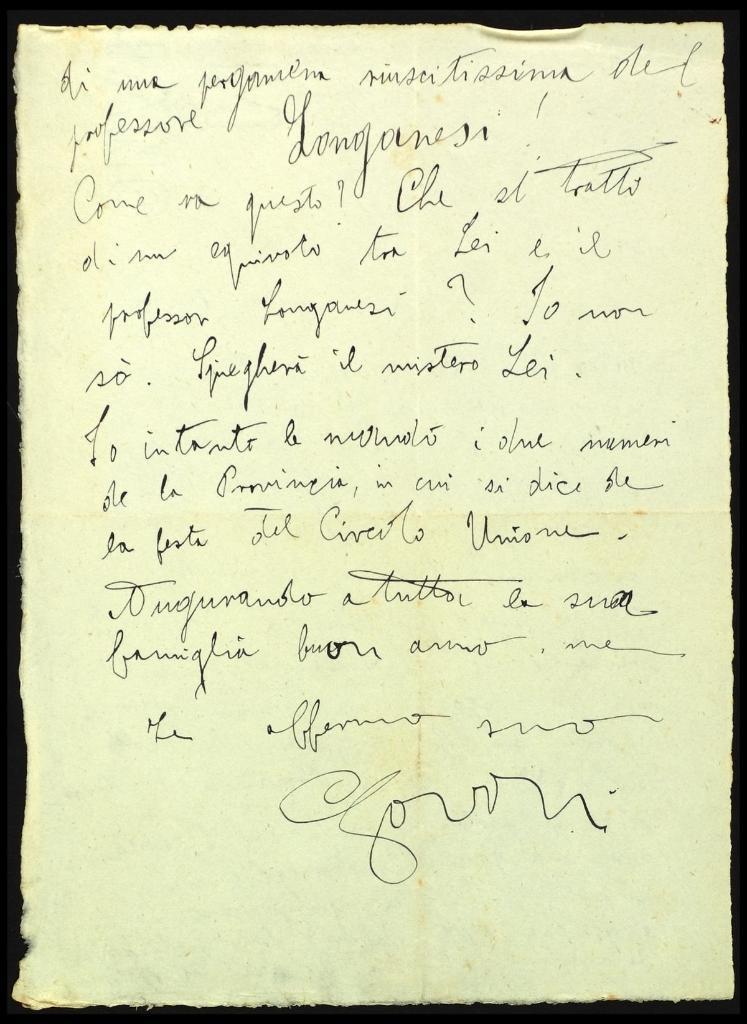 di una pergamena riuscitissima del
professore Longanesi!
Come va questo? Che si tratti
di un equivoco tra Lei e il
professor Longanesi? Io non
sò. Spiegherà il mistero Lei.
Io intanto le mando i due numeri
de la Provincia, in cui si dice de
la festa del Circolo Unione.
Augurando a tutta la sua
famiglia buon anno, me
Le affermo suo
Govoni